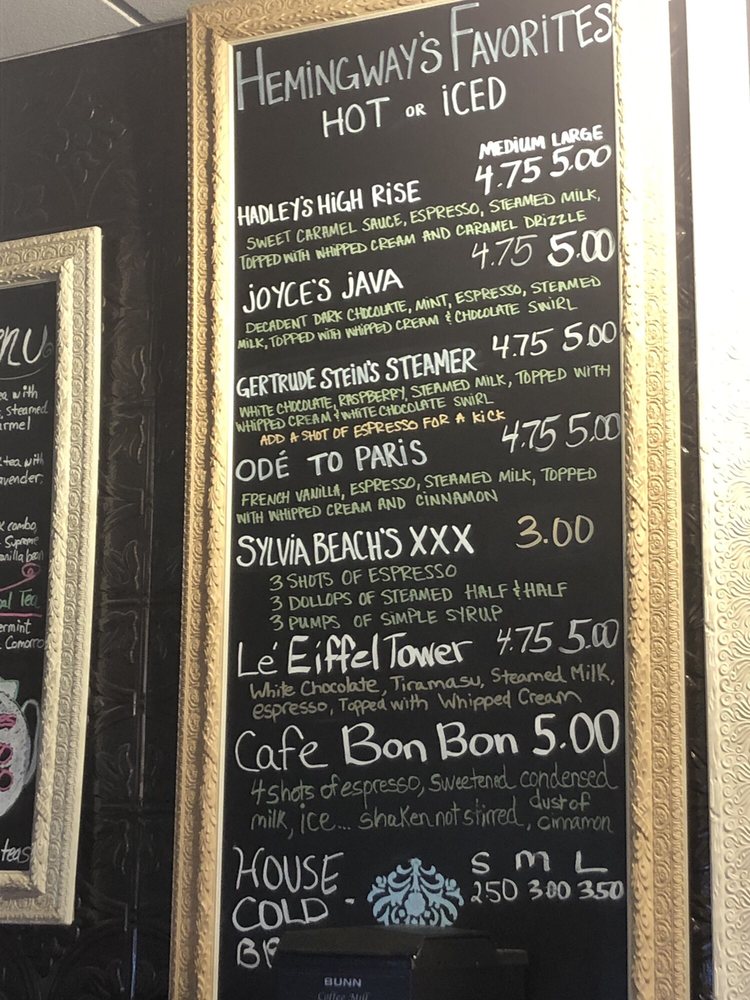 HEMINGWAY'S FAVORITES
HOT OR ICED
MEDIUM LARGE
HADLEY'S HIGH RISE 4.75 5.00
SWEET CARAMEL SAUCE, ESPRESSO, STEAMED MILK,
TOPPED WITH WHIPPED CREAM AND CARAMEL DRIZZLE
JOYCE'S JAVA 4.75 5.00
DECADENT DARK CHOCOLATE, MINT, ESPRESSO, STEAMED
MILK, TOPPED WITH WHIPPED CREAM & CHOCOLATE SWIRL
GERTRUDE STEIN'S STEAMER 4.75 5.00
WHITE CHOCOLATE, RASPBERRY, STEAMED MILK, TOPPED WITH
WHIPPED CREAM & WHITE CHOCOLATE SWIRL
ADD A SHOT OF ESPRESSO FOR A KICK
ODÉ TO PARIS 4.75 5.00
FRENCH VANILLA, ESPRESSO, STEAMED MILK, TOPPED
WITH WHIPPED CREAM AND CINNAMON
SYLVIA BEACH'S XXX 3.00
3 SHOTS OF ESPRESSO
3 DOLLOPS OF STEAMED HALF & HALF
3 PUMPS OF SIMPLE SYRUP
Lé Eiffel Tower 4.75 5.00
White Chocolate, Tiramasu, Steamed Milk,
espresso, Topped with Whipped Cream
Cafe Bon Bon 5.00
4 shots of espresso, Sweetened condensed
milk, ice... shaken not stirred, dust of
cinnamon
S M L
HOUSE 2.50 3.00 3.50
COLD -
BUNN
Coffee Mill
with
steamed
tea with
combo,
Supreme
Tea
Comorro
teas